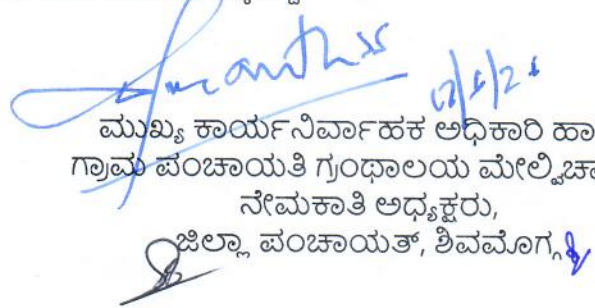 ಮುಖ್ಯ ಕಾರ್ಯನಿರ್ವಾಹಕ ಅಧಿಕಾರಿ ಹಾ
ಗ್ರಾಮ ಪಂಚಾಯತಿ ಗ್ರಂಥಾಲಯ ಮೇಲ್ವಿಚಾ
ನೇಮಕಾತಿ ಅಧ್ಯಕ್ಷರು,
ಜಿಲ್ಲಾ ಪಂಚಾಯತ್, ಶಿವಮೊಗ್ಗ